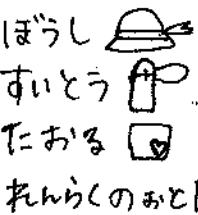 ぼうし
すいとう
たおる
れんらくのおと